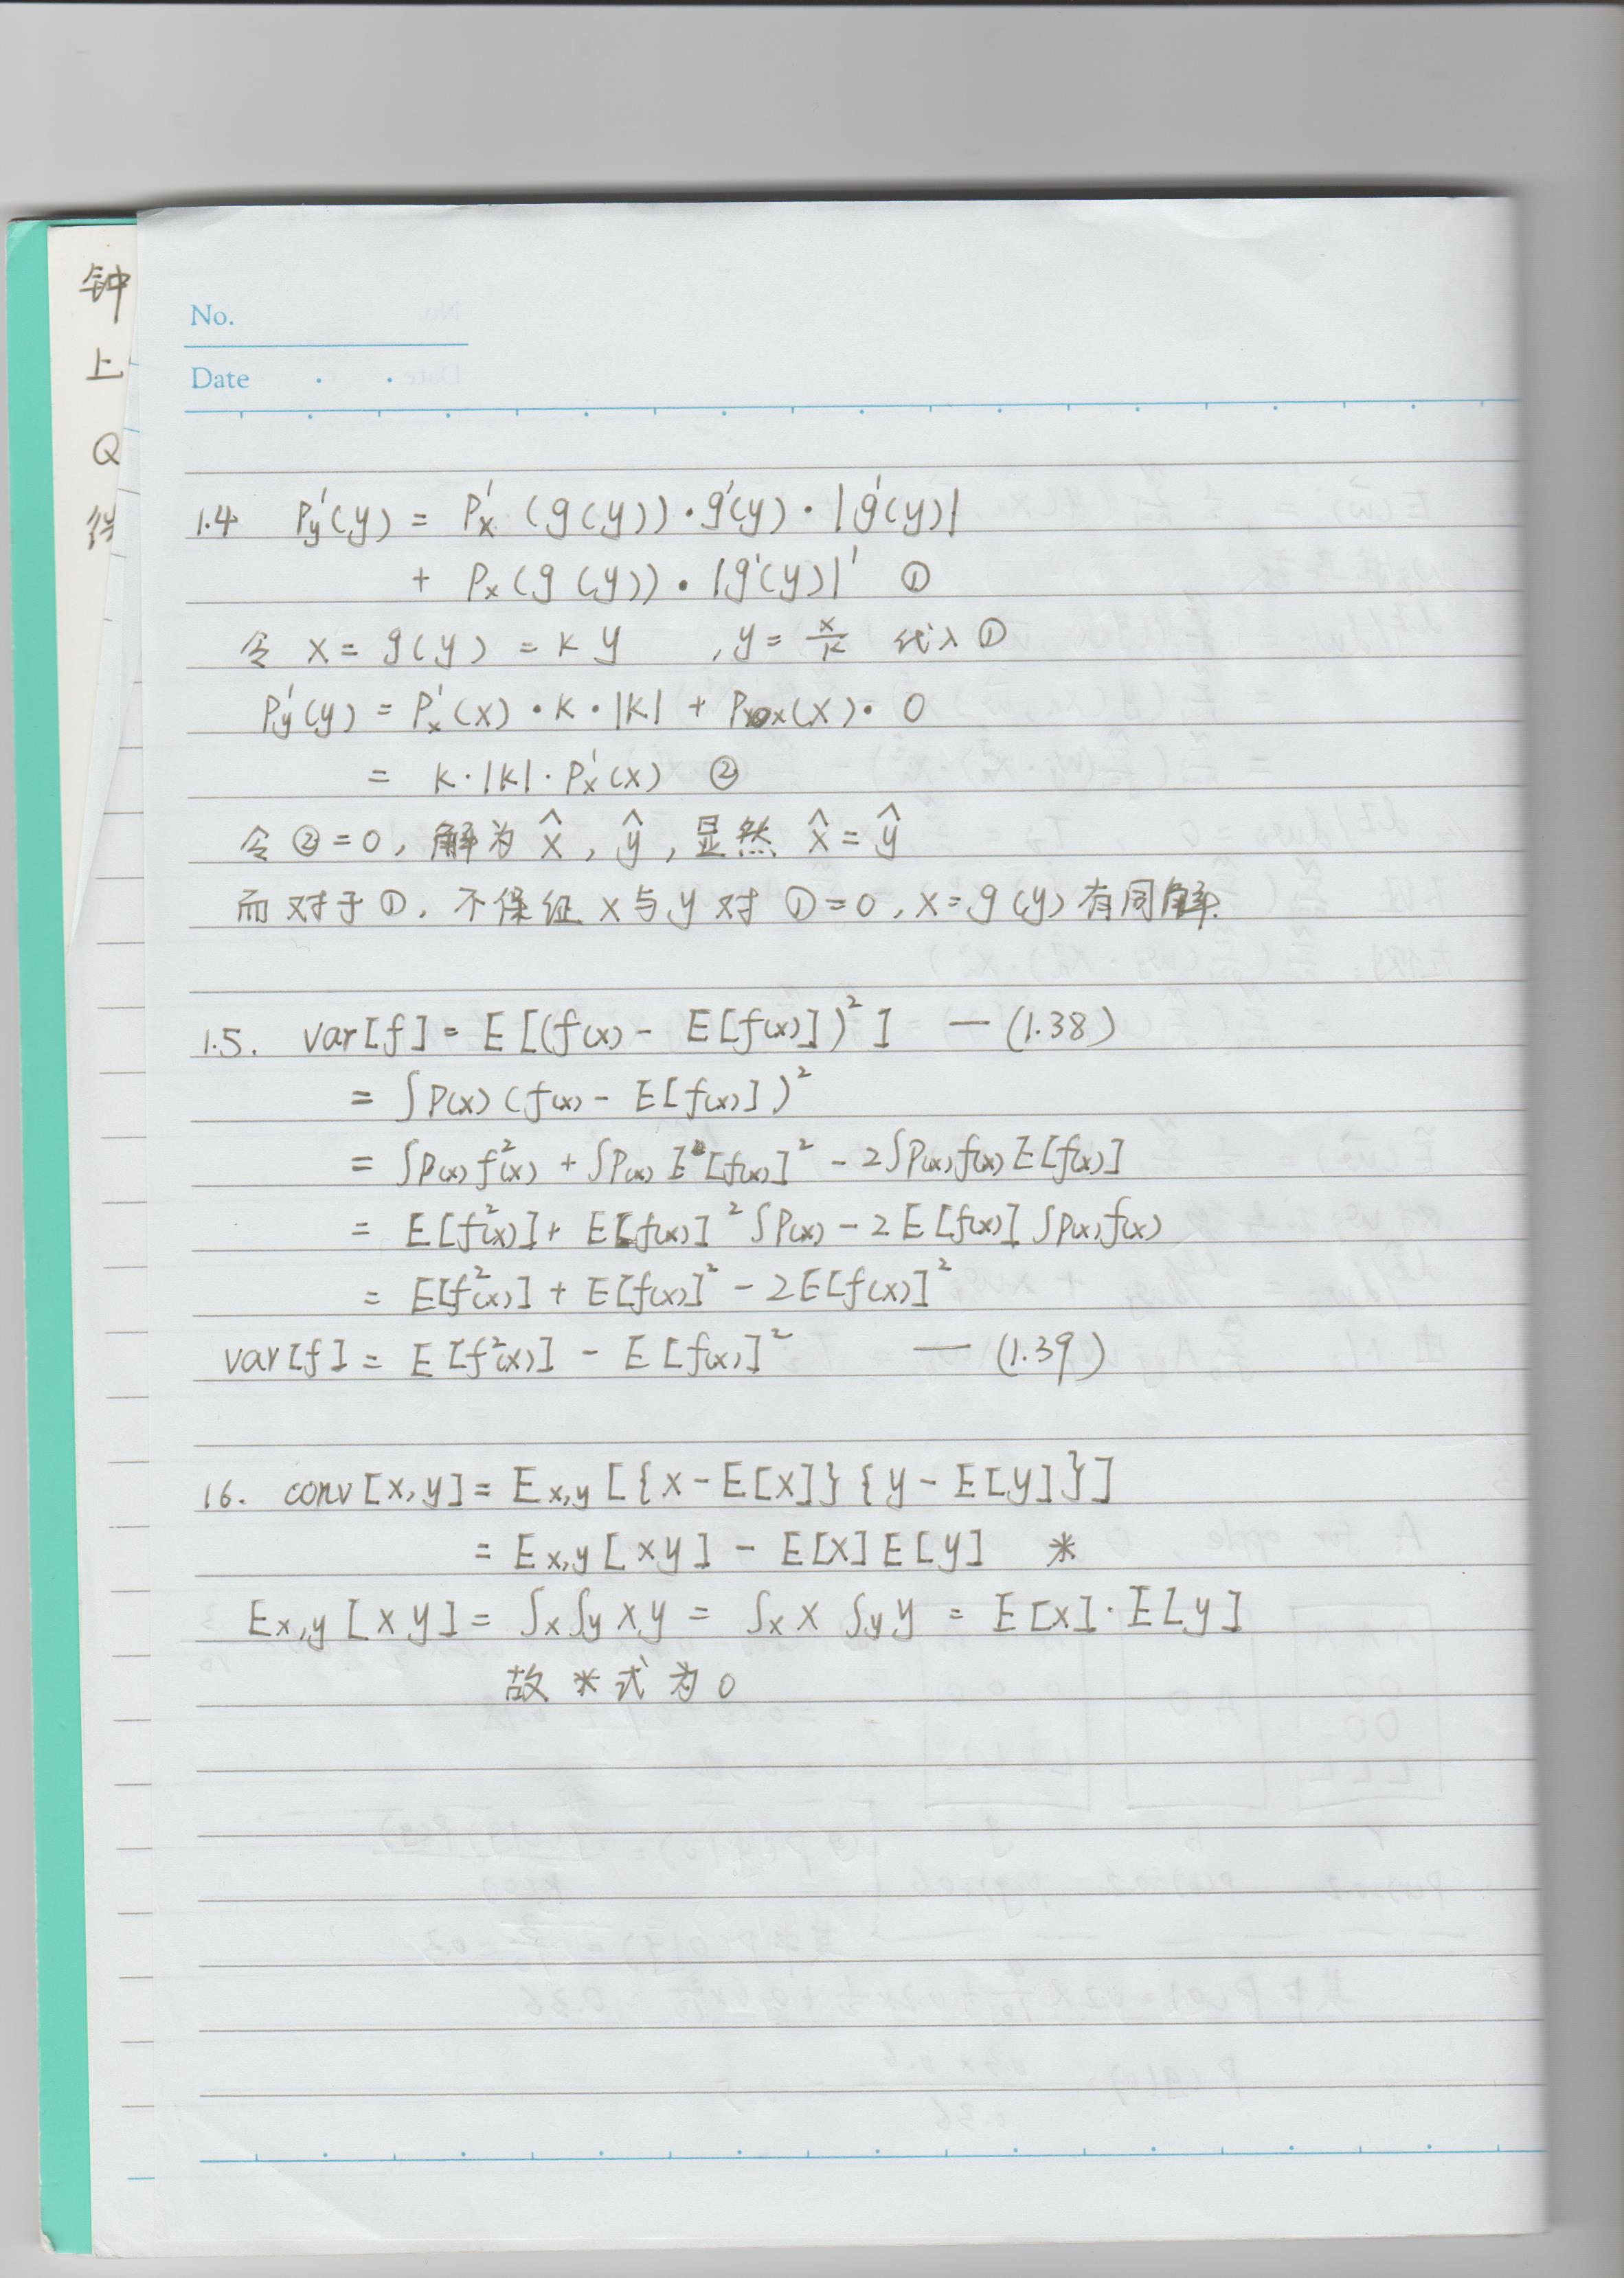 钟
上
Q
No.
Date
1.4 Py'(y) = Px'(g(y))·g'(y)·|g'(y)|
+ Px(g(y))·|g'(y)|' ①
令 x = g(y) = k y , y = x/k 代入 ①
Py'(y) = Px'(x)·k·|k| + Px(x)·0
= k·|k|·Px'(x) ②
令 ②=0, 解为 x̂, ŷ, 显然 x̂ = ŷ
而对于①, 不保证 x与y 对 ①=0, x=g(y) 有同解.
1.5. var[f] = E[(f(x) - E[f(x)])²] — (1.38)
= ∫P(x)(f(x) - E[f(x)])²
= ∫P(x)f²(x) + ∫P(x)E[f(x)]² - 2∫P(x)f(x)E[f(x)]
= E[f²(x)] + E[f(x)]²∫P(x) - 2E[f(x)]∫P(x)f(x)
= E[f²(x)] + E[f(x)]² - 2E[f(x)]²
var[f] = E[f²(x)] - E[f(x)]² — (1.39)
16. conv[x,y] = Ex,y[{x-E[x]}{y-E[y]}]
= Ex,y[xy] - E[x]E[y] *
Ex,y[xy] = ∫x∫y xy = ∫x x ∫y y = E[x]·E[y]
故 * 式为0